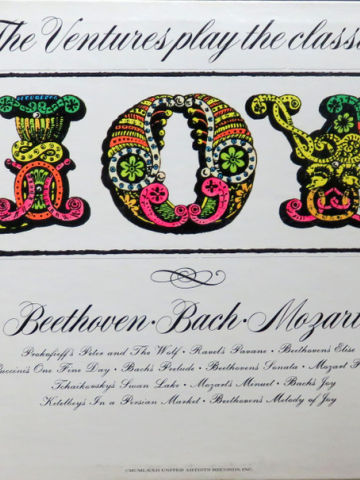 The Ventures play the classi
JOY
Beethoven · Bach · Mozart
Prokofieff's Peter and The Wolf · Ravel's Pavane · Beethoven's Elise
uccini's One Fine Day · Bach's Prelude · Beethoven's Sonata · Mozart
Tchaikovsky's Swan Lake · Mozart's Minuet · Bach's Joy
Ketelbey's In a Persian Market · Beethoven's Melody of Joy
UNITED ARTISTS RECORDS, INC.